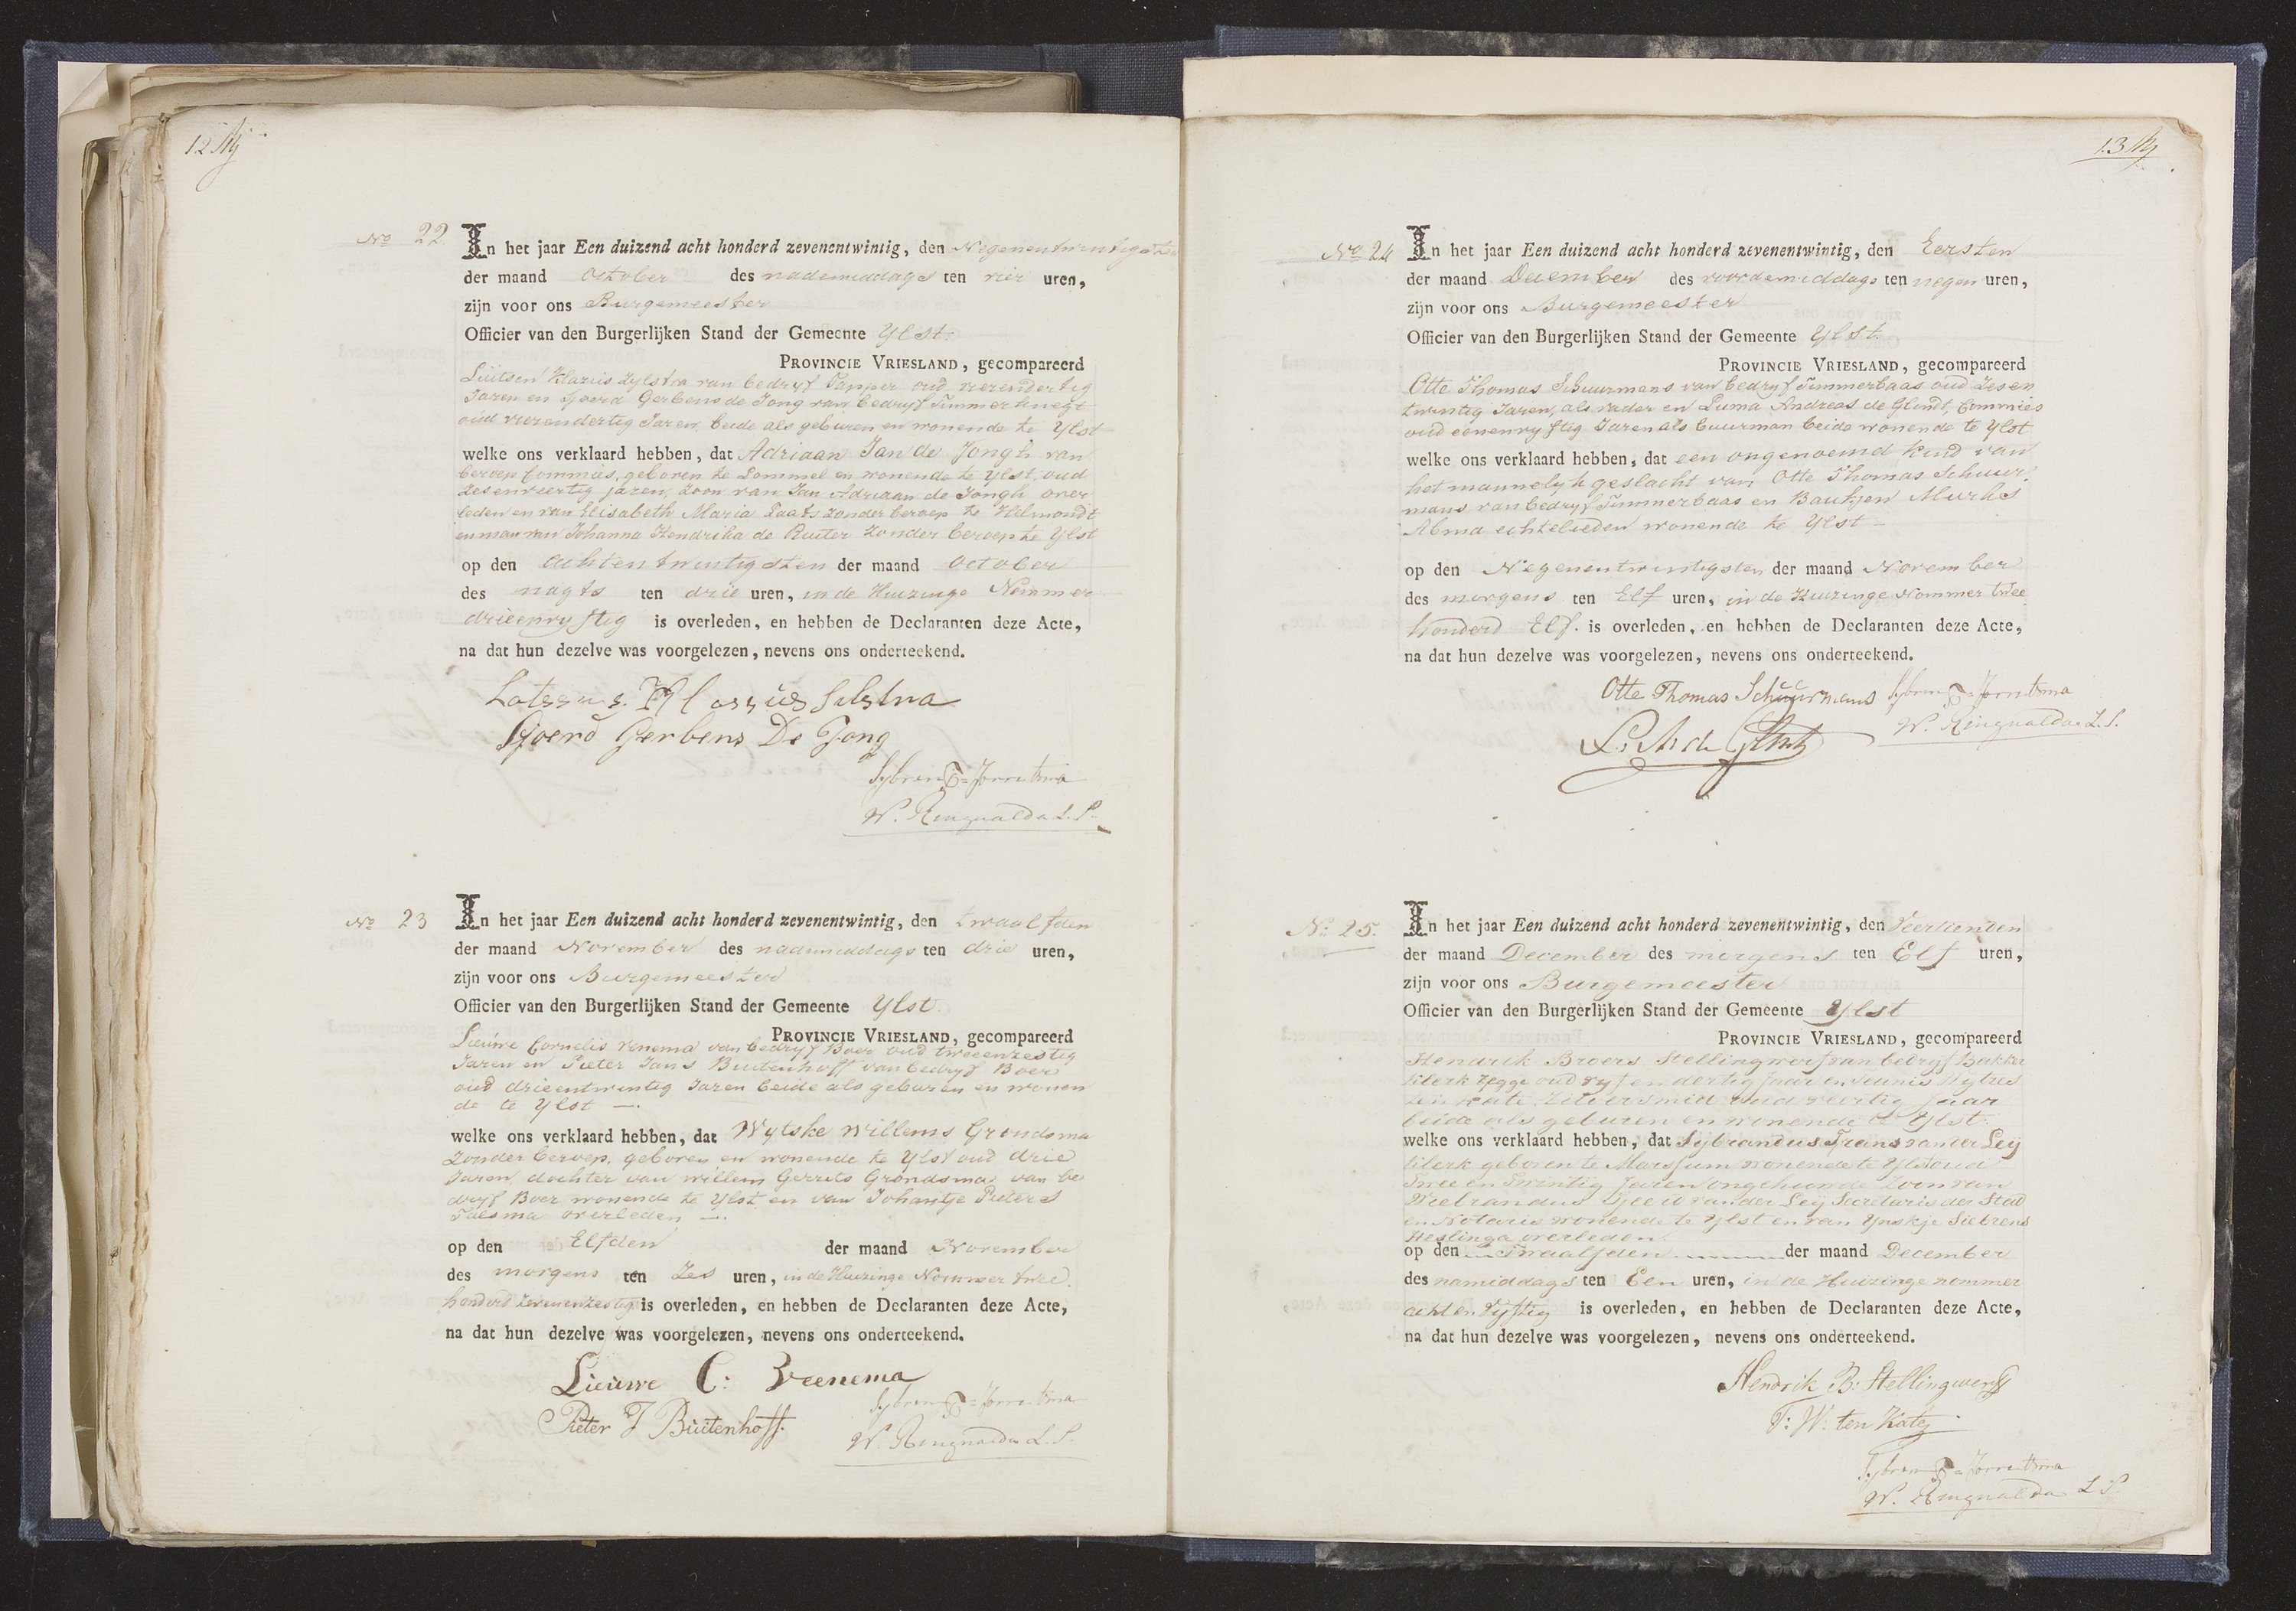 12
No 22
In het jaar Een duizend acht honderd zevenentwintig, den Negenentwintigsten
der maand October des nademiddags ten vier uren,
zijn voor ons Burgemeester
Officier van den Burgerlijken Stand der Gemeente Ylst.
PROVINCIE VRIESLAND, gecompareerd
Luitsen Klazius Zylstra van bedryf Tapper oud vierendertig
Jaren en Sjoerd Gerbens de Jong van bedryf Timmerknegt
oud vierendertig Jaren beide als geburen en wonende te Ylst
welke ons verklaard hebben, dat Adriaan Jan de Jongh van
beroep Commies, geboren te Lommel en wonende te Ylst, oud
Zesenveertig jaren, zoon van Jan Adriaan de Jongh over
leden en van Elisabeth Maria Paats zonder beroep te Helmondt
en man van Johanna Hendrika de Ruiter zonder beroep te Ylst
op den achtentwintigsten der maand October
des nagts ten drie uren, in de Huizinge Nommer
drieenvyftig is overleden, en hebben de Declaranten deze Acte,
na dat hun dezelve was voorgelezen, nevens ons onderteekend.
Klasius
Sjoerd Gerbens De Jong
W. Ringnalda L.S.
No 23
In het jaar Een duizend acht honderd zevenentwintig, den twaalfden
der maand November des nademiddags ten drie uren,
zijn voor ons Burgemeester
Officier van den Burgerlijken Stand der Gemeente Ylst.
PROVINCIE VRIESLAND, gecompareerd
Lieuwe Cornelis Venema van bedryf Boer oud tweeenzestig
Jaren en Pieter Jans Buitenhoff van bedryf Boer
oud drieentwintig Jaren beide als geburen en wonen
de te Ylst —.
welke ons verklaard hebben, dat Wytske Willems Grondsma
zonder beroep, geboren en wonende te Ylst oud drie
Jaren, dochter van Willem Gerrits Grondsma van be
dryf Boer wonende te Ylst en van Johantje Pieters
overleden —.
op den Elfden der maand November
des morgens ten Zes uren, in de Huizinge Nommer twee
honderd zevenenzestig is overleden, en hebben de Declaranten deze Acte,
na dat hun dezelve was voorgelezen, nevens ons onderteekend.
Lieuwe C: Veenema
Pieter J Buitenhoff.
W. Ringnalda L.S.
13
No 24
In het jaar Een duizend acht honderd zevenentwintig, den Eersten
der maand December des voordemiddags ten negen uren,
zijn voor ons Burgemeester
Officier van den Burgerlijken Stand der Gemeente Ylst.
PROVINCIE VRIESLAND, gecompareerd
Otte Thomas Schuurmans van bedryf Timmerbaas oud Zesen
twintig Jaren, als vader en Luma Andreas de Glindt, Commies
oud eenenvyftig Jaren als buurman beide wonende te Ylst
welke ons verklaard hebben, dat een ongenoemd kind van
het mannelyk geslacht van Otte Thomas Schuur
mans van bedryf Timmerbaas en Baukjen Murks
Abma echtelieden wonende te Ylst —
op den Negenentwintigsten der maand November
des morgens ten Elf uren, in de Huizinge Nommer twee
honderd Elf. is overleden, en hebben de Declaranten deze Acte,
na dat hun dezelve was voorgelezen, nevens ons onderteekend.
Otte Thomas Schuurmans
W. Ringnalda L.S.
No 25.
In het jaar Een duizend acht honderd zevenentwintig, den Veertienden
der maand December des morgens ten Elf uren,
zijn voor ons Burgemeester
Officier van den Burgerlijken Stand der Gemeente Ylst
PROVINCIE VRIESLAND, gecompareerd
Hendrik Broers Stellingwerf van bedryf Bakker
Klerk zegge oud vyfendertig Jaar en Teunis Wytzes
ten Cate, Zilversmid oud veertig Jaar
beide als geburen en wonende te Ylst.
welke ons verklaard hebben, dat Sybrandus Frans van der Ley
Klerk geboren te Marssum wonende te Ylst oud
Twee en Twintig Jaren ongehuwde Zoon van
Wiebrandus van der Ley Secretaris der Stad
en Notaris wonende te Ylst en van Ynskje Siebrens
Heslinga overleden.
op den Twaalfden der maand December
des namiddags ten Een uren, in de Huizinge nommer
acht en Vyftig is overleden, en hebben de Declaranten deze Acte,
na dat hun dezelve was voorgelezen, nevens ons onderteekend.
Hendrik B: Stellingwerf
T: W: ten Kate
W. Ringnalda L.S.